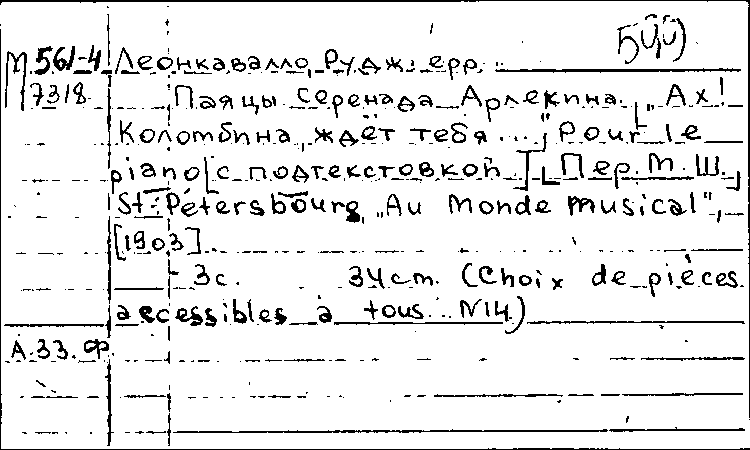 М 561-4 Леонкавалло, Руджерр.
7318 Паяцы. Серенада Арлекина. „Ах!
Коломбина, ждёт тебя..." Pour le
piano [с подтекстовкой.] [Пер. М. Ш.]
St.-Pétersbourg, „Au Monde musical",
[1903].
- 3с. 34cm. (Choix de pièces
accessibles à tous. N14.)
А.33.Ф.